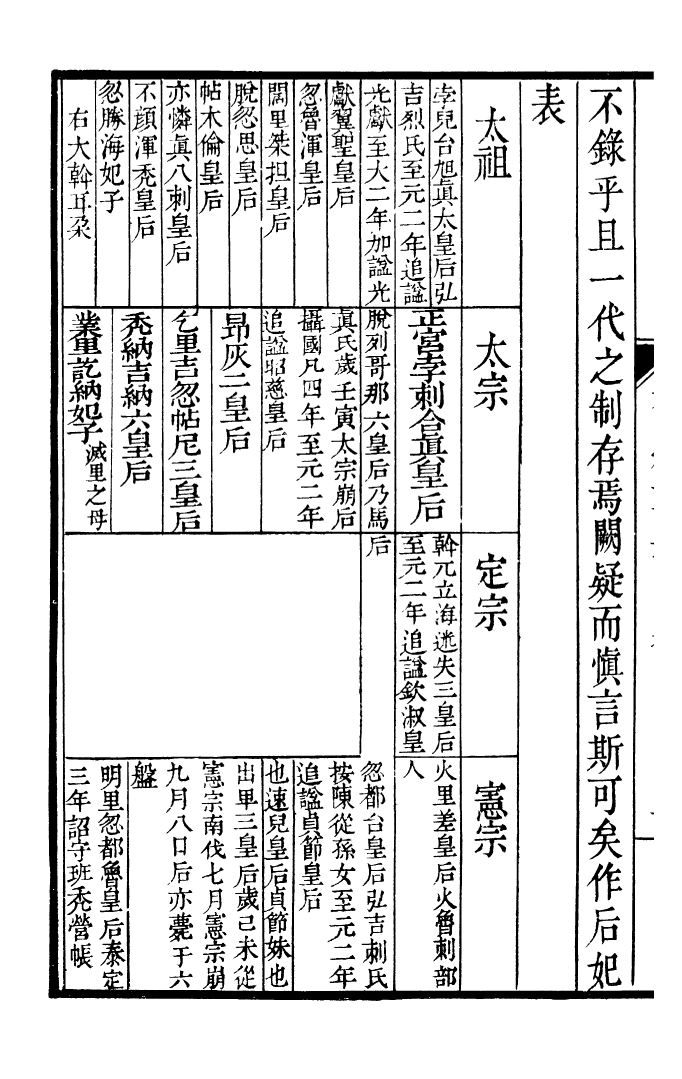 不錄乎且一代之制存焉闕疑而慎言斯可矣作后妃
表
太祖
孛兒台旭眞太皇后弘
吉烈氏至元二年追諡
光獻至大二年加諡光
獻翼聖皇后
忽魯渾皇后
闊里桀担皇后
脫忽思皇后
帖木倫皇后
亦憐眞八刺皇后
不顏渾禿皇后
忽勝海妃子
右大斡耳朶
太宗
正宮孛刺合眞皇后
脫列哥那六皇后乃馬
眞氏歲壬寅太宗崩后
攝國凡四年至元二年
追諡昭慈皇后
昻灰二皇后
乞里吉忽帖尼三皇后
禿納吉納六皇后
業里訖納妃子滅里之母
定宗
斡兀立海迷失三皇后
至元二年追諡欽淑皇
后
憲宗
火里差皇后火魯刺部
人
忽都台皇后弘吉刺氏
按陳從孫女至元二年
追諡貞節皇后
也速兒皇后貞節妹也
出卑三皇后歲己未從
憲宗南伐七月憲宗崩
九月八日后亦薨于六
盤
明里忽都魯皇后泰定
三年詔守班禿營帳